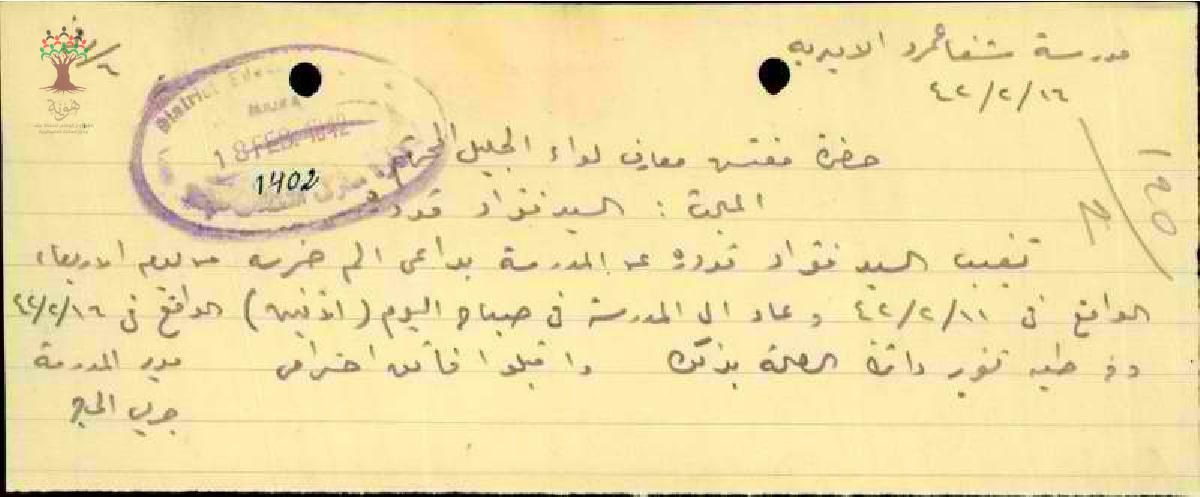 مدرسة شفاعمرو الاميرية
٤٢/٢/١٦
حضرة مفتش معارف لواء الجليل المحترم
المبحث : السيد فؤاد قدورة
تغيب السيد فؤاد قدورة عن المدرسة بداعي الم ضرسه من يوم الاربعاء
الواقع في ٤٢/٢/١١ وعاد الى المدرسة في صباح اليوم (الاثنين) الواقع في ٤٢/٢/١٦
وفي طيه تقرير دائرة الصحة بذلك واقبلوا فائق احترامي مدير المدرسة
District
18 FEB 1942
1402
هوية